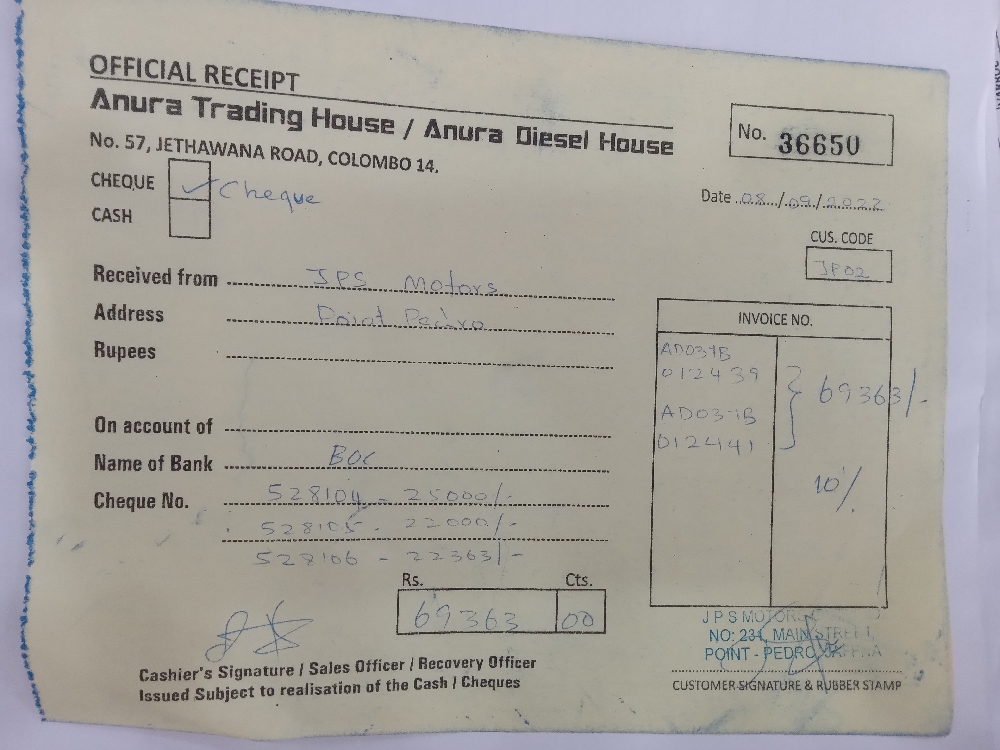 OFFICIAL RECEIPT
Anura Trading House / Anura Diesel House
No. 57, JETHAWANA ROAD, COLOMBO 14.
No. 36650
CHEQUE ✓ Cheque
CASH
Date 08/09/2022
CUS. CODE
JP02
Received from JPS Motors
Address Point Pedro
Rupees
INVOICE NO.
AD037B
012439
AD037B
012441
69363/-
10%
On account of
Name of Bank BOC
Cheque No. 528104 - 25000/-
528105 - 22000/-
528106 - 22363/-
Rs. Cts.
69363 00
J P S MOTORS
NO: 234, MAIN STREET,
POINT - PEDRO, JAFFNA
Cashier's Signature / Sales Officer / Recovery Officer
Issued Subject to realisation of the Cash / Cheques
CUSTOMER SIGNATURE & RUBBER STAMP